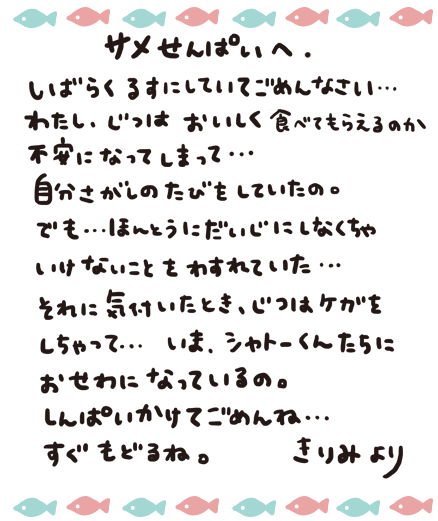 サメせんぱいへ.
しばらくるすにしていてごめんなさい…
わたし、じつは おいしく食べてもらえるのか
不安になってしまって…
自分さがしのたびをしていたの。
でも…ほんとうにだいじにしなくちゃ
いけないことをわすれていた…
それに気付いたとき、じつはケガを
しちゃって… いま、シャトーくんたちに
おせわになっているの。
しんぱいかけてごめんね…
すぐもどるね。 きりみより